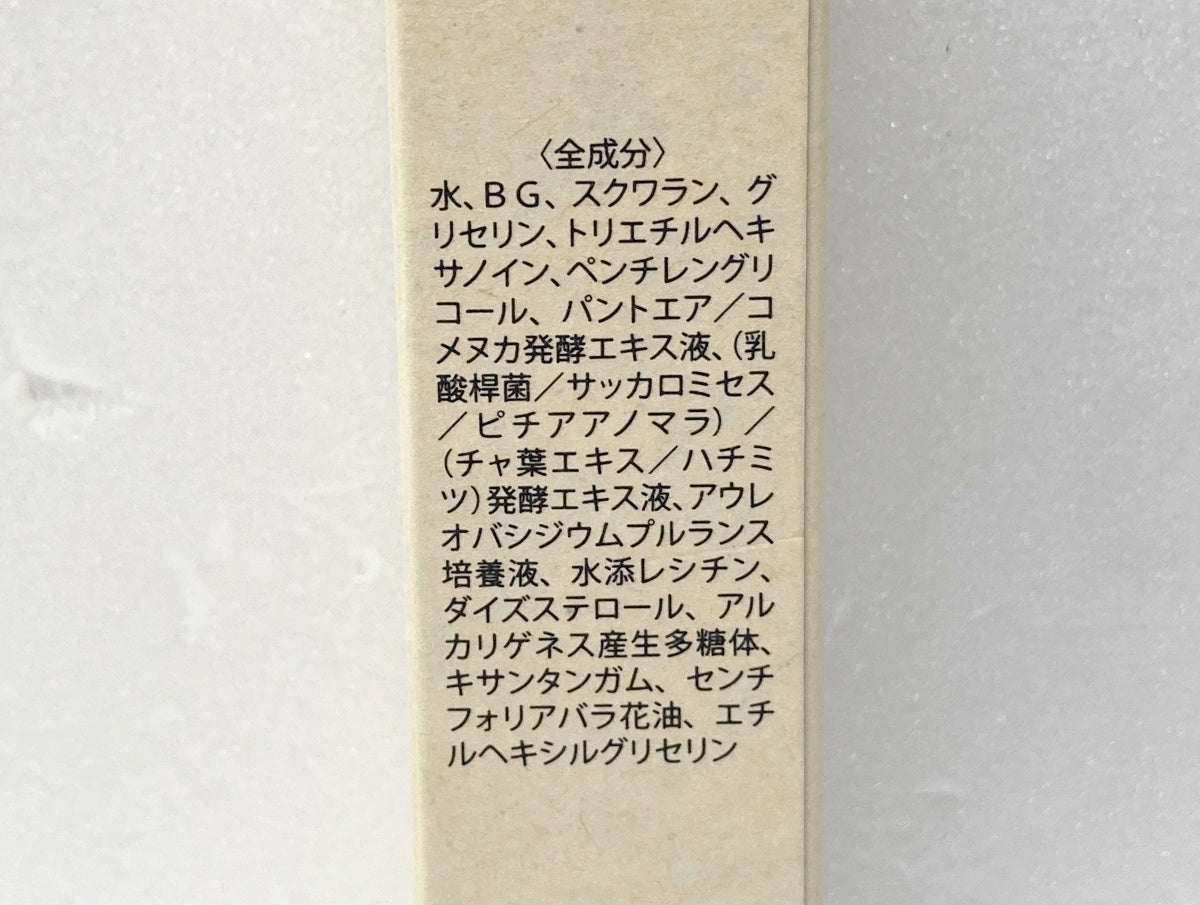 〈全成分〉
水、BG、スクワラン、グ
リセリン、トリエチルヘキ
サノイン、ペンチレングリ
コール、パントエア／コ
メヌカ発酵エキス液、（乳
酸桿菌／サッカロミセス
／ピチアアノマラ）／
（チャ葉エキス／ハチミ
ツ）発酵エキス液、アウレ
オバシジウムプルランス
培養液、水添レシチン、
ダイズステロール、アル
カリゲネス産生多糖体、
キサンタンガム、センチ
フォリアバラ花油、エチ
ルヘキシルグリセリン